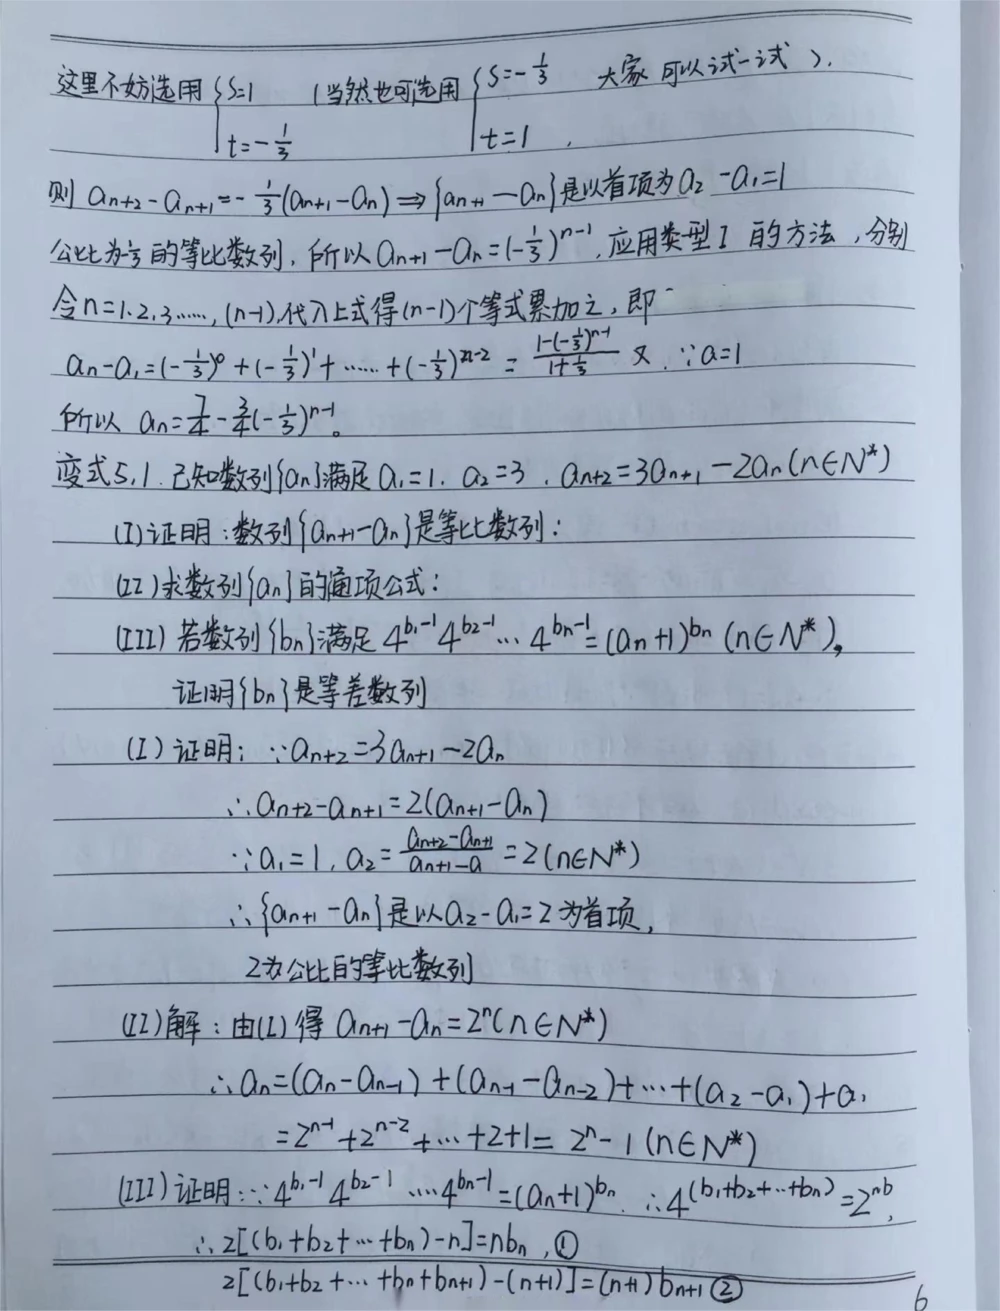 这里不妨选用{s=1 (当然也可选用{s=-1/3 大家可以试一试),
t=-1/3 t=1,
则 aₙ₊₂-aₙ₊₁=-1/3(aₙ₊₁-aₙ)⇒{aₙ₊₁-aₙ}是以首项为a₂-a₁=1
公比为-1/3的等比数列,所以aₙ₊₁-aₙ=(-1/3)ⁿ⁻¹,应用类型I的方法,分别
令n=1.2,3……,(n-1),代入上式得(n-1)个等式累加之,即
aₙ-a₁=(-1/3)⁰+(-1/3)¹+……+(-1/3)ⁿ⁻²=(1-(-1/3)ⁿ⁻¹)/(1+1/3) 又∵a=1
所以 aₙ=7/4-3/4(-1/3)ⁿ⁻¹。
变式5,1.已知数列{aₙ}满足a₁=1.a₂=3.aₙ₊₂=3aₙ₊₁-2aₙ(n∈N*)
(I)证明:数列{aₙ₊₁-aₙ}是等比数列:
(II)求数列{aₙ}的通项公式:
(III)若数列{bₙ}满足4^(b₁-1)4^(b₂-1)…4^(bₙ-1)=(aₙ+1)^(bₙ)(n∈N*),
证明{bₙ}是等差数列
(I)证明:∵aₙ₊₂=3aₙ₊₁-2aₙ
∴aₙ₊₂-aₙ₊₁=2(aₙ₊₁-aₙ)
∵a₁=1,a₂=(aₙ₊₂-aₙ₊₁)/(aₙ₊₁-a)=2(n∈N*)
∴{aₙ₊₁-aₙ}是以a₂-a₁=2为首项,
2为公比的等比数列
(II)解:由(I)得aₙ₊₁-aₙ=2ⁿ(n∈N*)
∴aₙ=(aₙ-aₙ₋₁)+(aₙ₋₁-aₙ₋₂)+…+(a₂-a₁)+a₁
=2ⁿ⁻¹+2ⁿ⁻²+…+2+1=2ⁿ-1(n∈N*)
(III)证明:∵4^(b₁-1)4^(b₂-1)……4^(bₙ-1)=(aₙ+1)^(bₙ).∴4^(b₁+b₂+…+bₙ)=2^(nb),
∴2[(b₁+b₂+…+bₙ)-n]=nbₙ,①
2[(b₁+b₂+…+bₙ+bₙ₊₁)-(n+1)]=(n+1)bₙ₊₁②
6